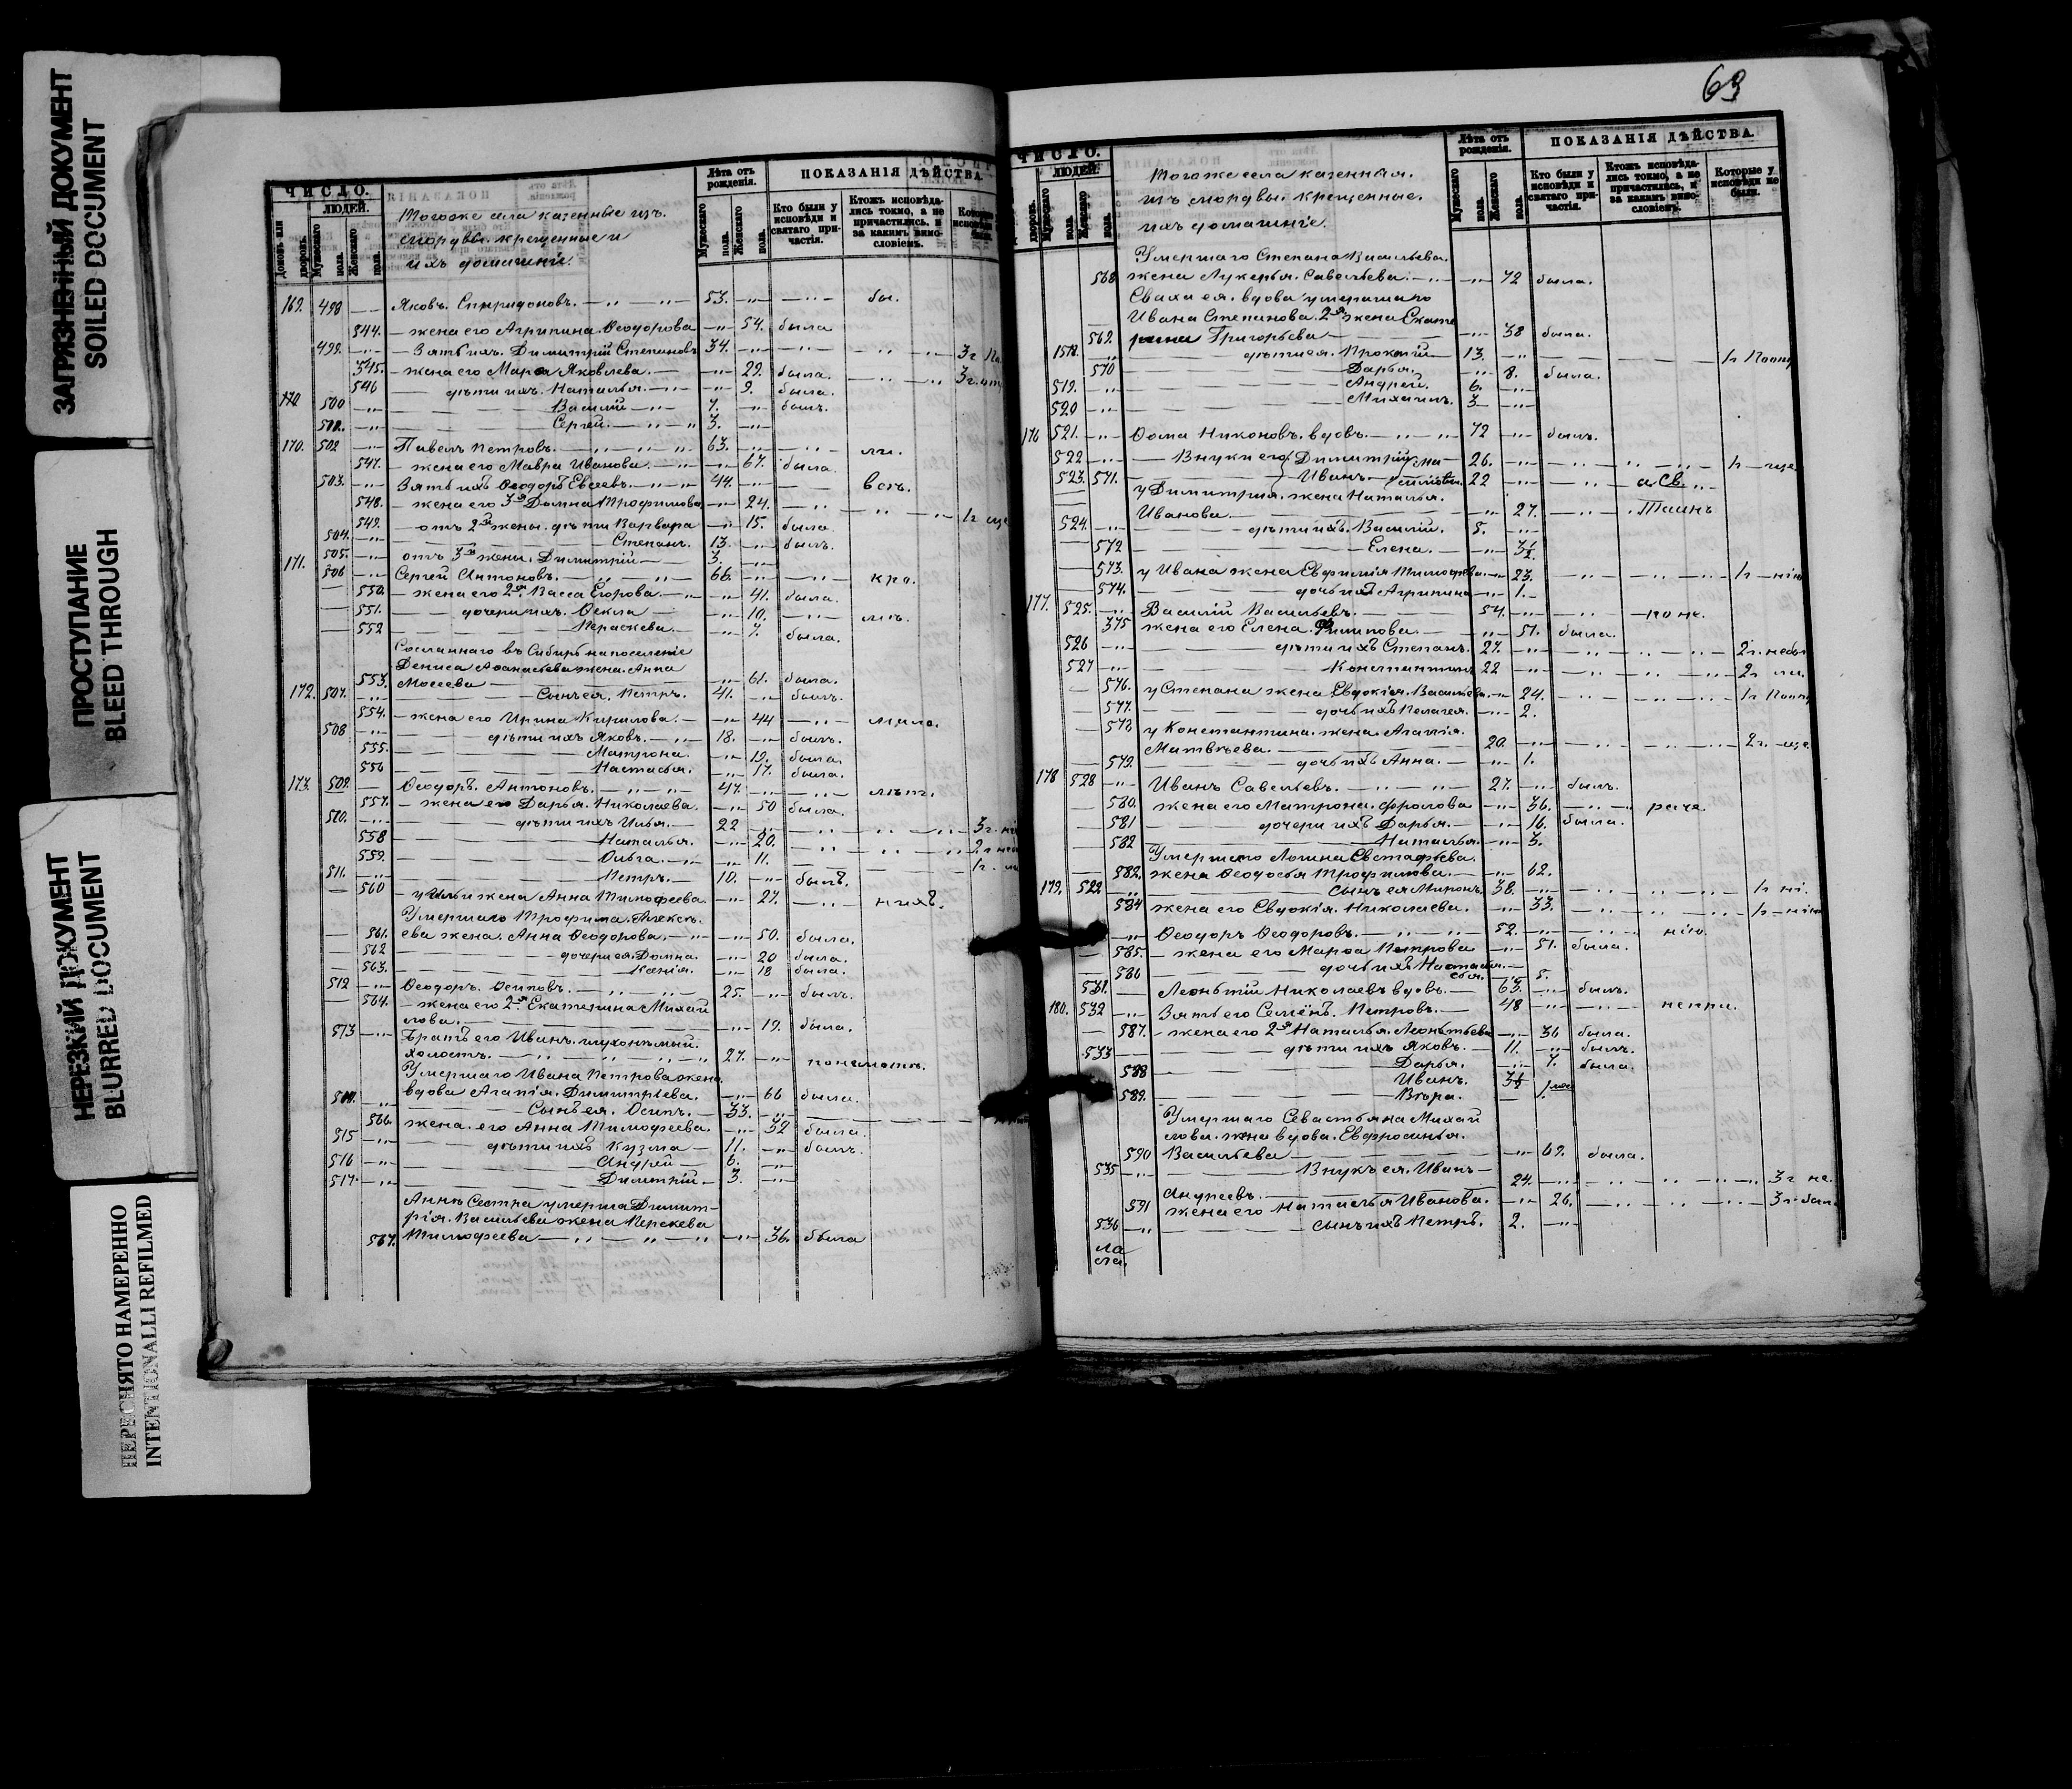 ЗАГРЯЗНЕННЫЙ ДОКУМЕНТ
SOILED DOCUMENT
ПРОСТУПАНИЕ
BLEED THROUGH
НЕРЕЗКИЙ ДОКУМЕНТ
BLURRED DOCUMENT
ПЕРЕСНЯТО НАМЕРЕННО
INTENTIONALLI REFILMED
ЧИСЛО.
ЛЮДЕЙ.
Домовъ или дворовъ.
Мужескаго пола.
Женскаго пола.
Тогоже села казенные изъ
мордвы крещенные и
ихъ домашніе.
Лѣта отъ рожденія.
Мужескаго пола.
Женскаго пола.
ПОКАЗАНІЯ ДѢЙСТВА
Кто были у исповѣди и святаго причастія.
Ктожъ исповѣдались токмо, а не причастились, и за какимъ винословіемъ.
169. 498 Яковъ Спиридоновъ. 53. бы.
544. жена его Агрипина Ѳеодорова 54. была
499. Зять ихъ Димитрій Степановъ 34. 3 г
545. жена его Марѳа Яковлева. 29. была. 3 г
546 дѣти ихъ Наталья. 9. была.
170 500 Василій 7. былъ.
Сергей. 3.
170. 502 Павелъ Петровъ. 63.
547. жена его Мавра Иванова. 67. была.
503. Зять ихъ Ѳеодоръ Евсеевъ. 44.
548. жена его 3я Домна Трофимова 24.
549. отъ 2й жены дѣти Варвара 15. была. 1 г
504. Степанъ. 13. былъ.
505. отъ 3й жены Димитрій 3.
171. 506 Сергей Антоновъ. 66.
550. жена его 2я Васса Егорова. 41. была.
551. дочери ихъ Ѳекла 10.
552 Параскева. 7. была.
Сосланнаго въ Сибирь на поселеніе
Дениса Аѳанасьева жена Анна
553. Мосеева 61. была.
172. 507. Сынъ ея Петръ. 41. былъ.
554. жена его Ирина Кирилова. 44
508 дѣти ихъ Яковъ. 18. былъ.
555. Матрона. 19. была.
556 Настасья. 17. была.
173. 509. Ѳеодоръ Антоновъ. 47.
557. жена его Дарья Николаева. 50 была.
510. дѣти ихъ Илья. 22 3 г
558 Наталья. 20. 2 г
559. Ольга. 11.
511. Петръ. 10. былъ.
560 у Ильи жена Анна Тимофеева. 27. нихъ.
Умершаго Трофима Алексѣ-
561. ева жена Анна Ѳеодорова. 50. была.
562 дочери ея Домна. 20 была.
563. Ксенія. 18 была.
512 Ѳеодоръ Осиповъ. 25. былъ.
564. жена его 2я Екатерина Михай
лова. 19. была.
513 Братъ его Иванъ глухонѣмый
холостъ. 27.
Умершаго Ивана Петрова жена
вдова Агапія Димитріева. 66 была.
Сынъ ея Осипъ. 33.
566. жена его Анна Тимофеева. 32 была.
515 дѣти ихъ Кузма 11. былъ.
516 Андрей 6.
517. Димитрій 3.
Аннѣ Сестра умерша Димит-
рія Васильева жена Перскева
567. Тимофеева 36. была
63
ЧИСЛО.
ЛЮДЕЙ.
дворовъ.
Мужескаго пола.
Женскаго пола.
Тогоже села казенныя
изъ мордвы крещенные
ихъ домашніе.
Лѣта отъ рожденія.
Мужескаго пола.
Женскаго пола.
ПОКАЗАНІЯ ДѢЙСТВА.
Кто были у исповѣди и святаго причастія.
Ктожъ исповѣдались токмо, а не причастились, и за какимъ винословіемъ.
Которые у исповѣди не были.
Умершаго Степана Васильева
568 жена Лукерья Савельева. 72 была.
Сваха ея вдова умершаго
Ивана Степанова 2я жена Екате
569. рина Григорьева 38 была.
дѣти ея Прокопій 13. 1 г
570 Дарья. 8. была.
519. Андрей. 6.
520 Михаилъ. 3
176 521. Ѳома Никоновъ вдовъ. 72 былъ.
522 Внуки его Димитрій 26. 1 г
523. 571. Иванъ 22 и Св.
у Димитрія жена Наталья
Иванова. 27. Таинъ
524. дѣти ихъ Василій. 5.
572 Елена. 3½
573. у Ивана жена Евфимія Тимофеева. 23. 1 г нію
574. дочь ихъ Агрипина 1.
177. 525. Василій Васильевъ. 54. по не.
575 жена его Елена Филипова. 51. была.
526 дѣти ихъ Степанъ. 27. 2 г. небы
527 Константинъ 22 2 г
576. у Степана жена Евдокія Васильева. 24. 1 г
577. дочь ихъ Пелагея. 2.
578 у Константина жена Агапія
Матвѣева. 20. 2 г.
579. дочь ихъ Анна. 1.
178 528 Иванъ Савельевъ. 27. былъ.
580. жена его Матрона Фролова 36.
581 дочери ихъ Дарья. 16. была.
582 Наталья. 3.
Умершаго Логина Евстафьева
582. жена Ѳеодосья Трофимова. 62.
179. 529 сынъ ея Миронъ. 38. 1 г ні.
584 жена его Евдокія Николаева. 33. 1 г нію
Ѳеодоръ Ѳеодоровъ. 52. нію.
585. жена его Марѳа Петрова 51. была.
586 дочь ихъ Настасья. 5.
531. Леонтій Николаевъ вдовъ. 63. былъ.
180. 532 Зять его Семёнъ Петровъ. 48 непри.
587. жена его 2я Наталья Леонтьева 36 была.
533 дѣти ихъ Яковъ. 11. былъ.
588 Дарья. 7. была.
Иванъ. 3½
589. Вѣра. 1 мес
Умершаго Севастьяна Михай
лова жена вдова Евфросинья
590 Васильева 69. была.
535 Внукъ ея Иванъ
Андреевъ. 24. 3 г не.
591 жена его Наталья Иванова. 26. 3 г
536 сынъ ихъ Петръ. 2.